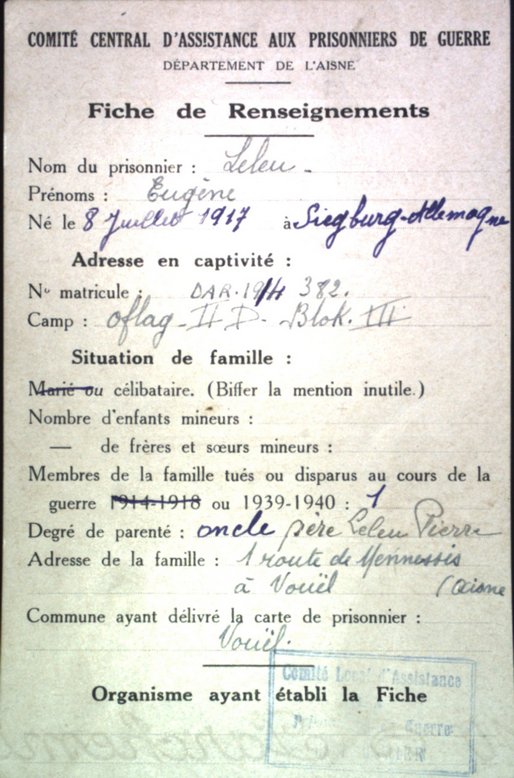 COMITÉ CENTRAL D'ASSISTANCE AUX PRISONNIERS DE GUERRE
DÉPARTEMENT DE L'AISNE
Fiche de Renseignements
Nom du prisonnier : Leleu
Prénoms : Eugène
Né le 8 Juillet 1917 à Siegburg-Allemagne
Adresse en captivité :
No matricule : DAR-19/4 382.
Camp : oflag-II D- Blok. III
Situation de famille :
Marié ou célibataire. (Biffer la mention inutile.)
Nombre d'enfants mineurs :
— de frères et sœurs mineurs :
Membres de la famille tués ou disparus au cours de la
guerre 1914-1918 ou 1939-1940 : 1
Degré de parenté : oncle père Leleu Pierre
Adresse de la famille : 1 route de Mennessis
à Vouël (Aisne
Commune ayant délivré la carte de prisonnier :
Vouël.
Organisme ayant établi la Fiche
Comité Local d'Assistance
Guerre